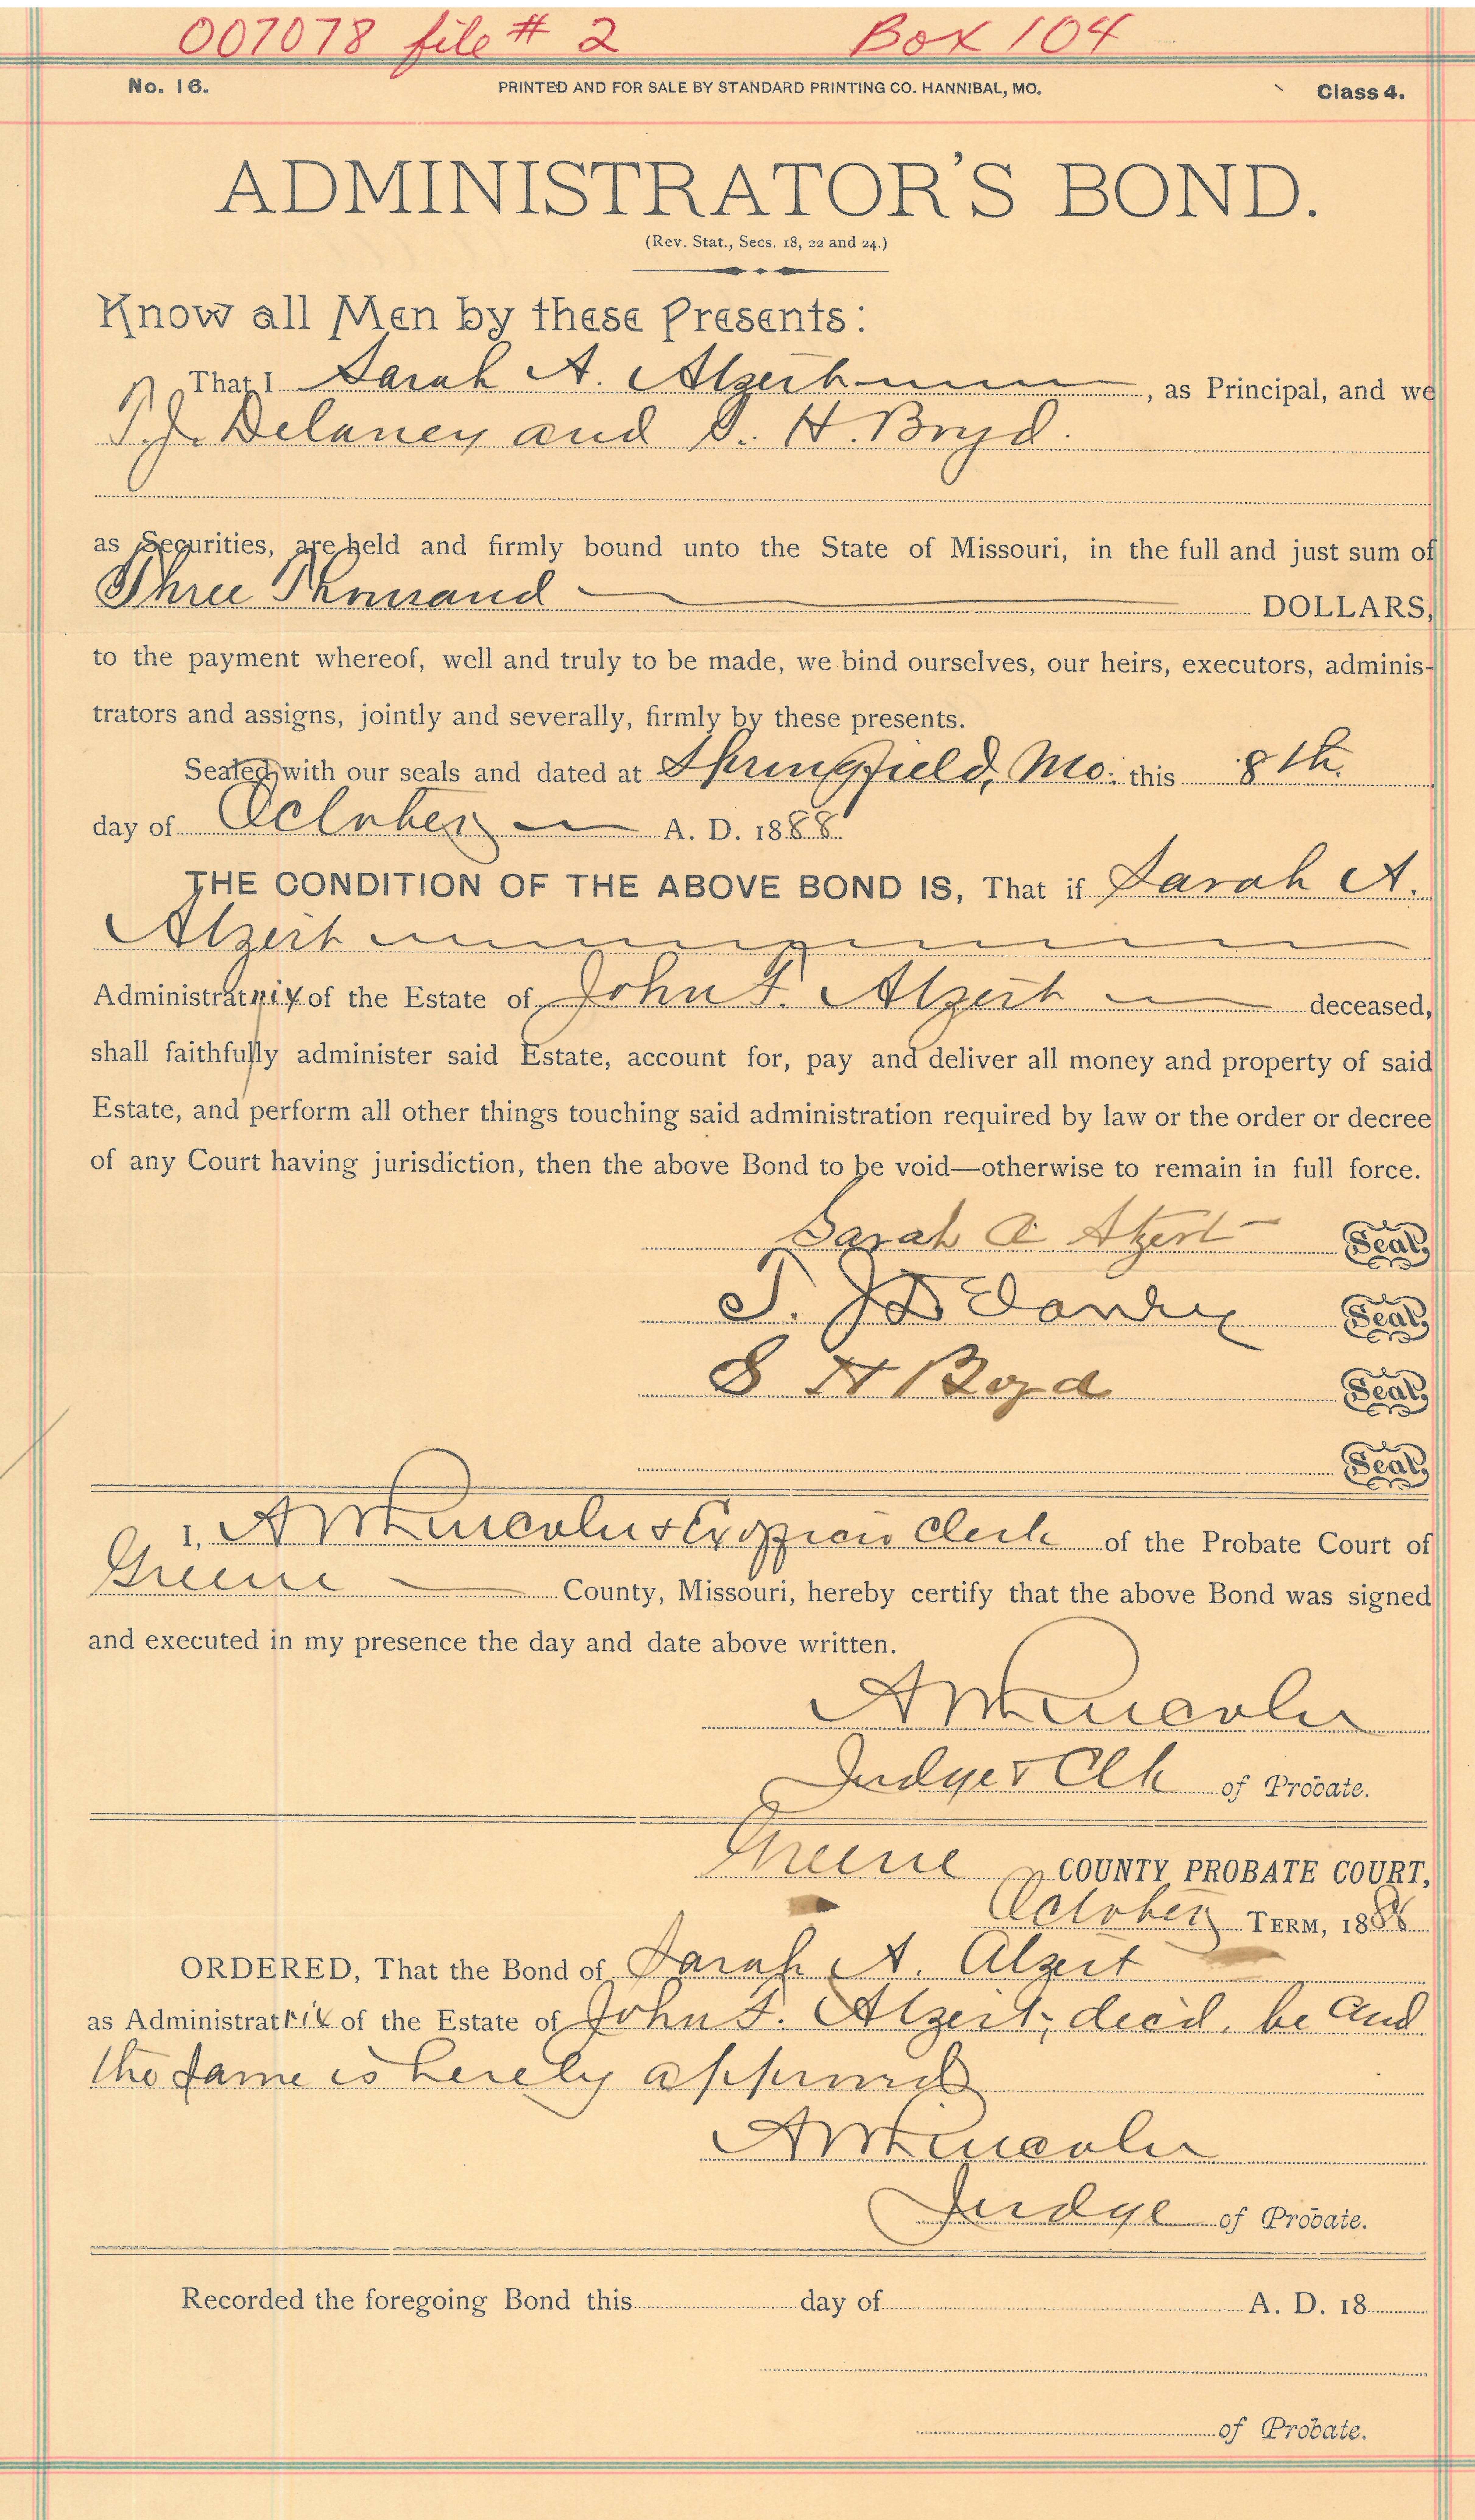 007078 file # 2 Box 104
No. 16. PRINTED AND FOR SALE BY STANDARD PRINTING CO. HANNIBAL, MO. Class 4.
ADMINISTRATOR'S BOND.
(Rev. Stat., Secs. 18, 22 and 24.)
Know all Men by these Presents:
That I Sarah A. Alzert, as Principal, and we
T. J. Delaney and S. H. Boyd.
as Securities, are held and firmly bound unto the State of Missouri, in the full and just sum of
Three Thousand DOLLARS,
to the payment whereof, well and truly to be made, we bind ourselves, our heirs, executors, adminis-
trators and assigns, jointly and severally, firmly by these presents.
Sealed with our seals and dated at Springfield, Mo: this 8th.
day of October A. D. 1888
THE CONDITION OF THE ABOVE BOND IS, That if Sarah A.
Alzert
Administratrix of the Estate of John F. Alzert deceased,
shall faithfully administer said Estate, account for, pay and deliver all money and property of said
Estate, and perform all other things touching said administration required by law or the order or decree
of any Court having jurisdiction, then the above Bond to be void—otherwise to remain in full force.
Sarah A Alzert Seal.
T. J. Delaney Seal.
S H Boyd Seal.
Seal.
I, A W Lincoln & Ex officio Clerk of the Probate Court of
Greene County, Missouri, hereby certify that the above Bond was signed
and executed in my presence the day and date above written.
A W Lincoln
Judge & Clk of Probate.
Greene COUNTY PROBATE COURT,
October TERM, 1888
ORDERED, That the Bond of Sarah A. Alzert
as Administratrix of the Estate of John F. Alzert, dec'd, be and
the same is hereby approved
A W Lincoln
Judge of Probate.
Recorded the foregoing Bond this day of A. D. 18
of Probate.